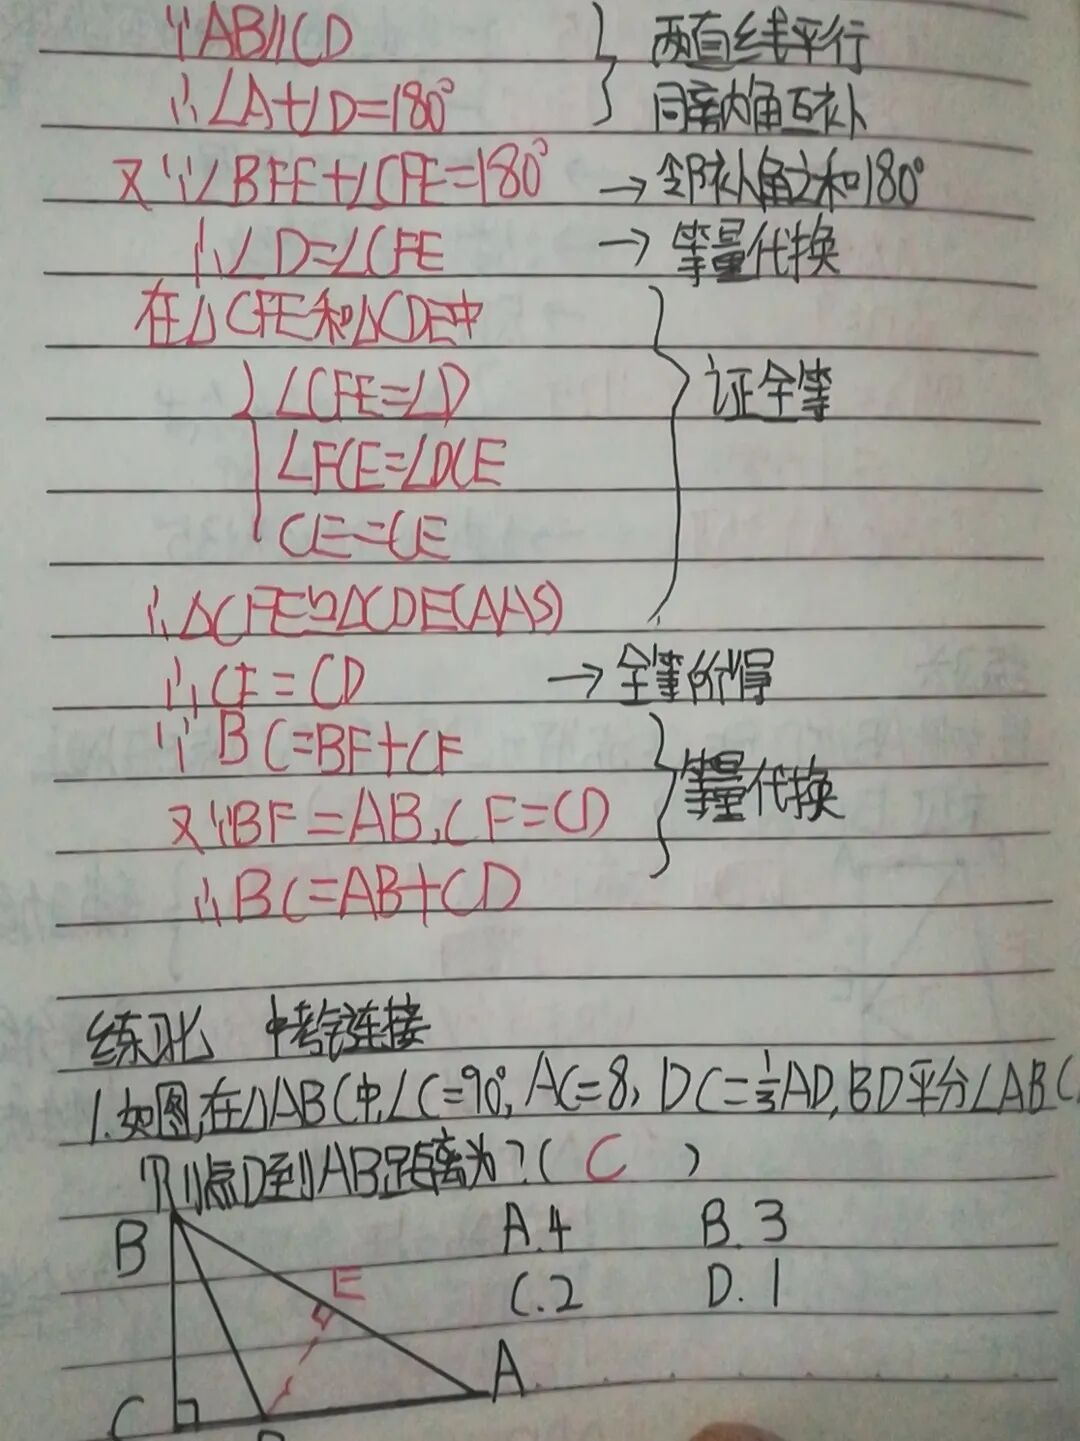 ∵AB//CD 两直线平行
∴∠A+∠D=180° 同旁内角互补
又∵∠BFE+∠CFE=180° → 邻补角之和180°
∴∠D=∠CFE → 等量代换
在△CFE和△CDE中
∠CFE=∠D 证全等
∠FCE=∠DCE
CE=CE
∴△CFE≌△CDE(AAS)
∴CF=CD → 全等所得
∵BC=BF+CF
又∵BF=AB,CF=CD 等量代换
∴BC=AB+CD
练习 中考链连接
1.如图,在△ABC中,∠C=90°,AC=8,DC=1/3AD,BD平分∠ABC,
则点D到AB距离为?( C )
A.4 B.3
C.2 D.1
B
E
A
C